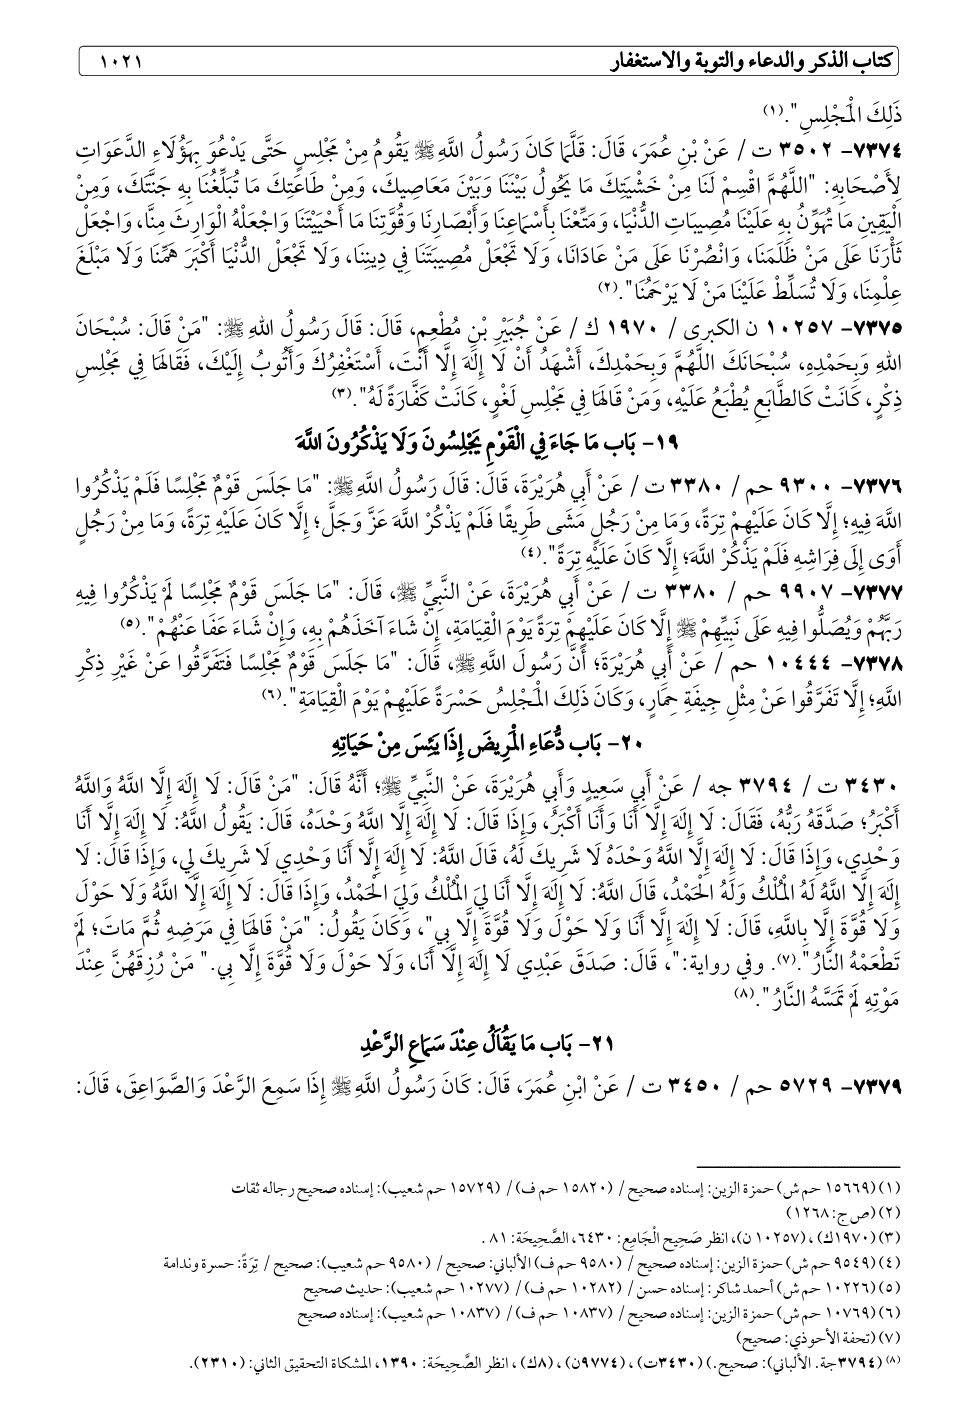 كتاب الذكر والدعاء والتوبة والاستغفار ١٠٢١
ذَلِكَ الْمَجْلِسِ".(١)
٧٣٧٤- ٣٥٠٢ ت / عَنْ بْنِ عُمَرَ، قَالَ: قَلَّمَا كَانَ رَسُولُ اللَّهِ ﷺ يَقُومُ مِنْ مَجْلِسٍ حَتَّى يَدْعُوَ بِهَؤُلَاءِ الدَّعَوَاتِ
لِأَصْحَابِهِ: "اللَّهُمَّ اقْسِمْ لَنَا مِنْ خَشْيَتِكَ مَا يَحُولُ بَيْنَنَا وَبَيْنَ مَعَاصِيكَ، وَمِنْ طَاعَتِكَ مَا تُبَلِّغُنَا بِهِ جَنَّتَكَ، وَمِنْ
الْيَقِينِ مَا تُهَوِّنُ بِهِ عَلَيْنَا مُصِيبَاتِ الدُّنْيَا، وَمَتِّعْنَا بِأَسْمَاعِنَا وَأَبْصَارِنَا وَقُوَّتِنَا مَا أَحْيَيْتَنَا وَاجْعَلْهُ الْوَارِثَ مِنَّا، وَاجْعَلْ
ثَأْرَنَا عَلَى مَنْ ظَلَمَنَا، وَانْصُرْنَا عَلَى مَنْ عَادَانَا، وَلَا تَجْعَلْ مُصِيبَتَنَا فِي دِينِنَا، وَلَا تَجْعَلِ الدُّنْيَا أَكْبَرَ هَمِّنَا وَلَا مَبْلَغَ
عِلْمِنَا، وَلَا تُسَلِّطْ عَلَيْنَا مَنْ لَا يَرْحَمُنَا".(٢)
٧٣٧٥- ١٠٢٥٧ ن الكبرى / ١٩٧٠ ك / عَنْ جُبَيْرِ بْنِ مُطْعِمٍ، قَالَ: قَالَ رَسُولُ اللهِ ﷺ: "مَنْ قَالَ: سُبْحَانَ
اللهِ وَبِحَمْدِهِ، سُبْحَانَكَ اللَّهُمَّ وَبِحَمْدِكَ، أَشْهَدُ أَنْ لَا إِلَهَ إِلَّا أَنْتَ، أَسْتَغْفِرُكَ وَأَتُوبُ إِلَيْكَ، فَقَالَهَا فِي مَجْلِسِ
ذِكْرٍ، كَانَتْ كَالطَّابَعِ يُطْبَعُ عَلَيْهِ، وَمَنْ قَالَهَا فِي مَجْلِسِ لَغْوٍ، كَانَتْ كَفَّارَةً لَهُ".(٣)
١٩- بَاب مَا جَاءَ فِي الْقَوْمِ يَجْلِسُونَ وَلَا يَذْكُرُونَ اللَّهَ
٧٣٧٦- ٩٣٠٠ حم / ٣٣٨٠ ت / عَنْ أَبِي هُرَيْرَةَ، قَالَ: قَالَ رَسُولُ اللَّهِ ﷺ: "مَا جَلَسَ قَوْمٌ مَجْلِسًا فَلَمْ يَذْكُرُوا
اللَّهَ فِيهِ؛ إِلَّا كَانَ عَلَيْهِمْ تِرَةً، وَمَا مِنْ رَجُلٍ مَشَى طَرِيقًا فَلَمْ يَذْكُرِ اللَّهَ عَزَّ وَجَلَّ؛ إِلَّا كَانَ عَلَيْهِ تِرَةً، وَمَا مِنْ رَجُلٍ
أَوَى إِلَى فِرَاشِهِ فَلَمْ يَذْكُرِ اللَّهَ؛ إِلَّا كَانَ عَلَيْهِ تِرَةً".(٤)
٧٣٧٧- ٩٩٠٧ حم / ٣٣٨٠ ت / عَنْ أَبِي هُرَيْرَةَ، عَنْ النَّبِيِّ ﷺ، قَالَ: "مَا جَلَسَ قَوْمٌ مَجْلِسًا لَمْ يَذْكُرُوا فِيهِ
رَبَّهُمْ وَيُصَلُّوا فِيهِ عَلَى نَبِيِّهِمْ ﷺ إِلَّا كَانَ عَلَيْهِمْ تِرَةً يَوْمَ الْقِيَامَةِ، إِنْ شَاءَ آخَذَهُمْ بِهِ، وَإِنْ شَاءَ عَفَا عَنْهُمْ".(٥)
٧٣٧٨- ١٠٤٤٤ حم / عَنْ أَبِي هُرَيْرَةَ؛ أَنَّ رَسُولَ اللَّهِ ﷺ، قَالَ: "مَا جَلَسَ قَوْمٌ مَجْلِسًا فَتَفَرَّقُوا عَنْ غَيْرِ ذِكْرِ
اللَّهِ؛ إِلَّا تَفَرَّقُوا عَنْ مِثْلِ جِيفَةِ حِمَارٍ، وَكَانَ ذَلِكَ الْمَجْلِسُ حَسْرَةً عَلَيْهِمْ يَوْمَ الْقِيَامَةِ".(٦)
٢٠- بَاب دُعَاءِ الْمَرِيضِ إِذَا يَئِسَ مِنْ حَيَاتِهِ
٣٤٣٠ ت / ٣٧٩٤ جه / عَنْ أَبِي سَعِيدٍ وَأَبِي هُرَيْرَةَ، عَنْ النَّبِيِّ ﷺ؛ أَنَّهُ قَالَ: "مَنْ قَالَ: لَا إِلَهَ إِلَّا اللَّهُ وَاللَّهُ
أَكْبَرُ؛ صَدَّقَهُ رَبُّهُ، فَقَالَ: لَا إِلَهَ إِلَّا أَنَا وَأَنَا أَكْبَرُ، وَإِذَا قَالَ: لَا إِلَهَ إِلَّا اللَّهُ وَحْدَهُ، قَالَ: يَقُولُ اللَّهُ: لَا إِلَهَ إِلَّا أَنَا
وَحْدِي، وَإِذَا قَالَ: لَا إِلَهَ إِلَّا اللَّهُ وَحْدَهُ لَا شَرِيكَ لَهُ، قَالَ اللَّهُ: لَا إِلَهَ إِلَّا أَنَا وَحْدِي لَا شَرِيكَ لِي، وَإِذَا قَالَ: لَا
إِلَهَ إِلَّا اللَّهُ لَهُ الْمُلْكُ وَلَهُ الْحَمْدُ، قَالَ اللَّهُ: لَا إِلَهَ إِلَّا أَنَا لِيَ الْمُلْكُ وَلِيَ الْحَمْدُ، وَإِذَا قَالَ: لَا إِلَهَ إِلَّا اللَّهُ وَلَا حَوْلَ
وَلَا قُوَّةَ إِلَّا بِاللَّهِ، قَالَ: لَا إِلَهَ إِلَّا أَنَا وَلَا حَوْلَ وَلَا قُوَّةَ إِلَّا بِي"، وَكَانَ يَقُولُ: "مَنْ قَالَهَا فِي مَرَضِهِ ثُمَّ مَاتَ؛ لَمْ
تَطْعَمْهُ النَّارُ".(٧). وفي رواية:"، قَالَ: صَدَقَ عَبْدِي لَا إِلَهَ إِلَّا أَنَا، وَلَا حَوْلَ وَلَا قُوَّةَ إِلَّا بِي." مَنْ رُزِقَهُنَّ عِنْدَ
مَوْتِهِ لَمْ تَمَسَّهُ النَّارُ".(٨)
٢١- بَاب مَا يَقُالُ عِنْدَ سَمَاعِ الرَّعْدِ
٧٣٧٩- ٥٧٢٩ حم / ٣٤٥٠ ت / عَنْ ابْنِ عُمَرَ، قَالَ: كَانَ رَسُولُ اللَّهِ ﷺ إِذَا سَمِعَ الرَّعْدَ وَالصَّوَاعِقَ، قَالَ:
(١) (١٥٦٦٩ حم ش) حمزة الزين: إسناده صحيح / (١٥٨٢٠ حم ف)/ (١٥٧٢٩ حم شعيب): إسناده صحيح رجاله ثقات
(٢) (ص ج: ١٢٦٨)
(٣) (١٩٧٠ك) ، (١٠٢٥٧ ن)، انظر صَحِيح الْجَامِع: ٦٤٣٠، الصَّحِيحَة: ٨١ .
(٤) (٩٥٤٩ حم ش) حمزة الزين: إسناده صحيح / (٩٥٨٠ حم ف) الألباني: صحيح / (٩٥٨٠ حم شعيب): صحيح / تِرَةً: حسرة وندامة
(٥) (١٠٢٢٦ حم ش) أحمد شاكر: إسناده حسن / (١٠٢٨٢ حم ف)/ (١٠٢٧٧ حم شعيب): حديث صحيح
(٦) (١٠٧٦٩ حم ش) حمزة الزين: إسناده صحيح / (١٠٨٣٧ حم ف)/ (١٠٨٣٧ حم شعيب): إسناده صحيح
(٧) (تحفة الأحوذي: صحيح)
(٨) (٣٧٩٤جة. الألباني): صحيح.) (٣٤٣٠ت) ، (٩٧٧٤ن) ، (٨ك) ، انظر الصَّحِيحَة: ١٣٩٠، المشكاة التحقيق الثاني: (٢٣١٠).